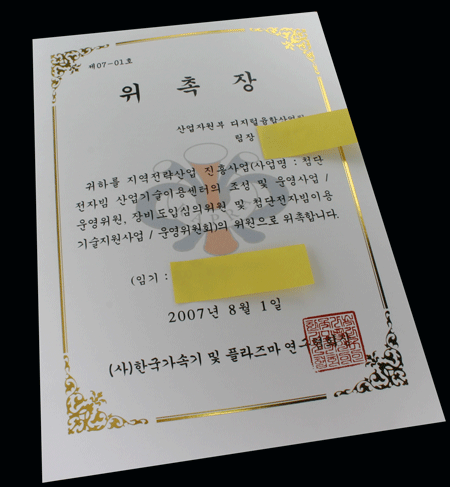 제07-01호
위 촉 장
산업자원부 디지털융합산업팀
팀장
귀하를 지역전략산업 진흥사업(사업명 : 첨단
전자빔 산업기술이용센터의 조성 및 운영사업 /
운영위원, 장비도입심의위원 및 첨단전자빔이용
기술지원사업 / 운영위원회)의 위원으로 위촉합니다.
(임기 :
2007년 8월 1일
(사)한국가속기 및 플라즈마 연구협회장